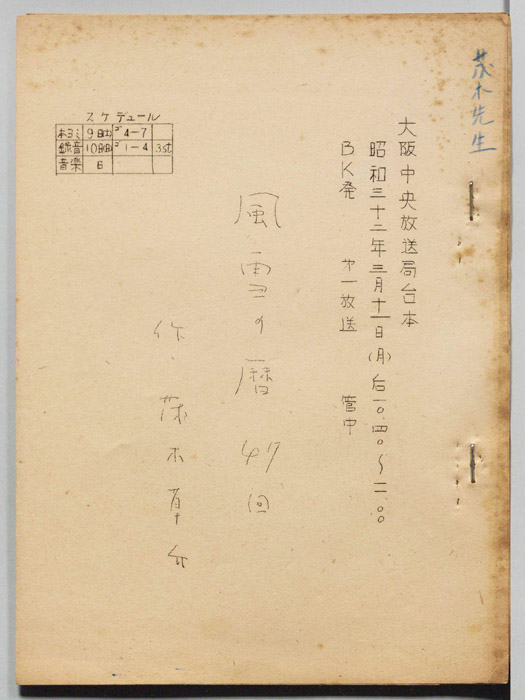 茂木先生
大阪中央放送局台本
昭和三十二年三月十一日(月)后一〇.四〇〜一一.〇〇
BK発 才一放送 管中
風雪の暦 47回
作・茂木草介
スケデュール
本ヨミ 9日(土) ゴ4-7
録音 10日(日) ゴ1-4 3st
音楽 日